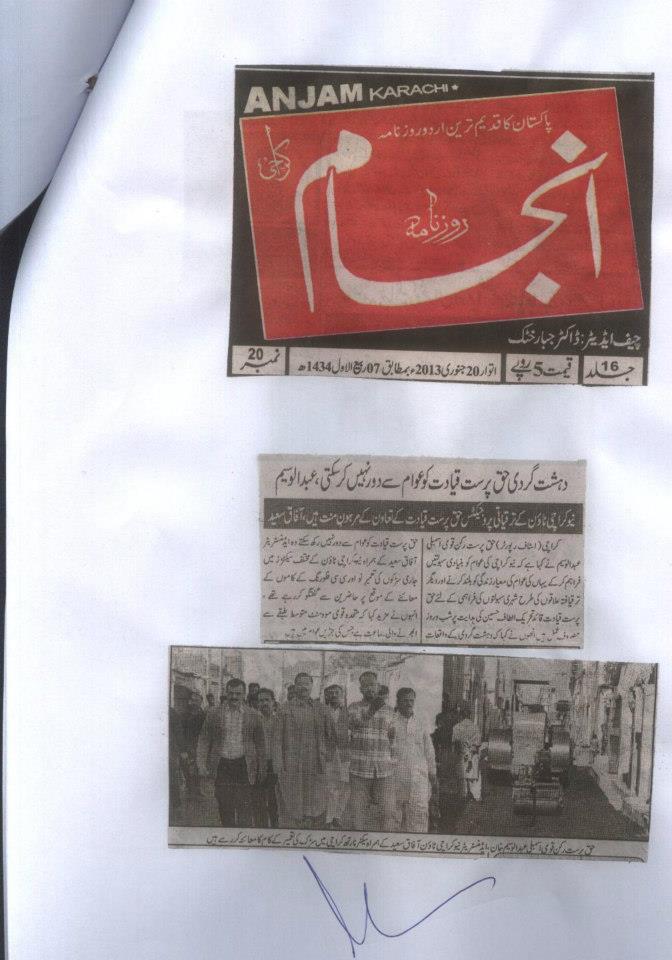 ANJAM KARACHI
پاکستان کا قدیم ترین اردو روزنامہ
کراچی
روزنامہ
انجام
چیف ایڈیٹر: ڈاکٹر جبار خٹک
جلد 16
قیمت 5 روپے
اتوار 20 جنوری 2013ء بمطابق 07 ربیع الاول 1434ھ
نمبر 20
دہشت گردی حق پرست قیادت کو عوام سے دور نہیں کرسکتی، عبدالوسیم
نیو کراچی ٹاؤن کے ترقیاتی پروجیکٹس حق پرست قیادت کے تعاون کے مرہون منت ہیں، آفاق سعید
کراچی (اسٹاف رپورٹر) حق پرست رکن قومی اسمبلی
عبدالوسیم نے کہا ہے کہ نیو کراچی کی عوام کو بنیادی سہولتیں
فراہم کر کے یہاں کی عوام کی معیار زندگی کو بلند کرنے اور دیگر
ترقیافتہ علاقوں کی طرح شہری سہولتوں کی فراہمی کے لئے حق
پرست قیادت قائد تحریک الطاف حسین کی ہدایت پر شب و روز
مصروف عمل ہیں انہوں نے کہا کہ دہشت گردی کے واقعات
حق پرست قیادت کو عوام سے دور نہیں رکھ سکتے وہ ایڈمنسٹریٹر
آفاق سعید کے ہمراہ نیو کراچی ٹاؤن کے مختلف سیکٹرز میں
جاری سڑکوں کی تعمیر نو اور سی سی فلورنگ کے کاموں کے
معائنے کے موقع پر حاضرین سے گفتگو کر رہے تھے،
انہوں نے مزید کہا کہ متحدہ قومی موومنٹ متوسط طبقے سے
ابھرنے والی جماعت ہے جس کی جڑیں عوام میں ہیں
حق پرست رکن قومی اسمبلی عبدالوسیم خان، ایڈمنسٹریٹر نیو کراچی ٹاؤن آفاق سعید کے ہمراہ سیکٹر نارتھ کراچی میں سڑک کی تعمیر کے کام کا معائنہ کر رہے ہیں